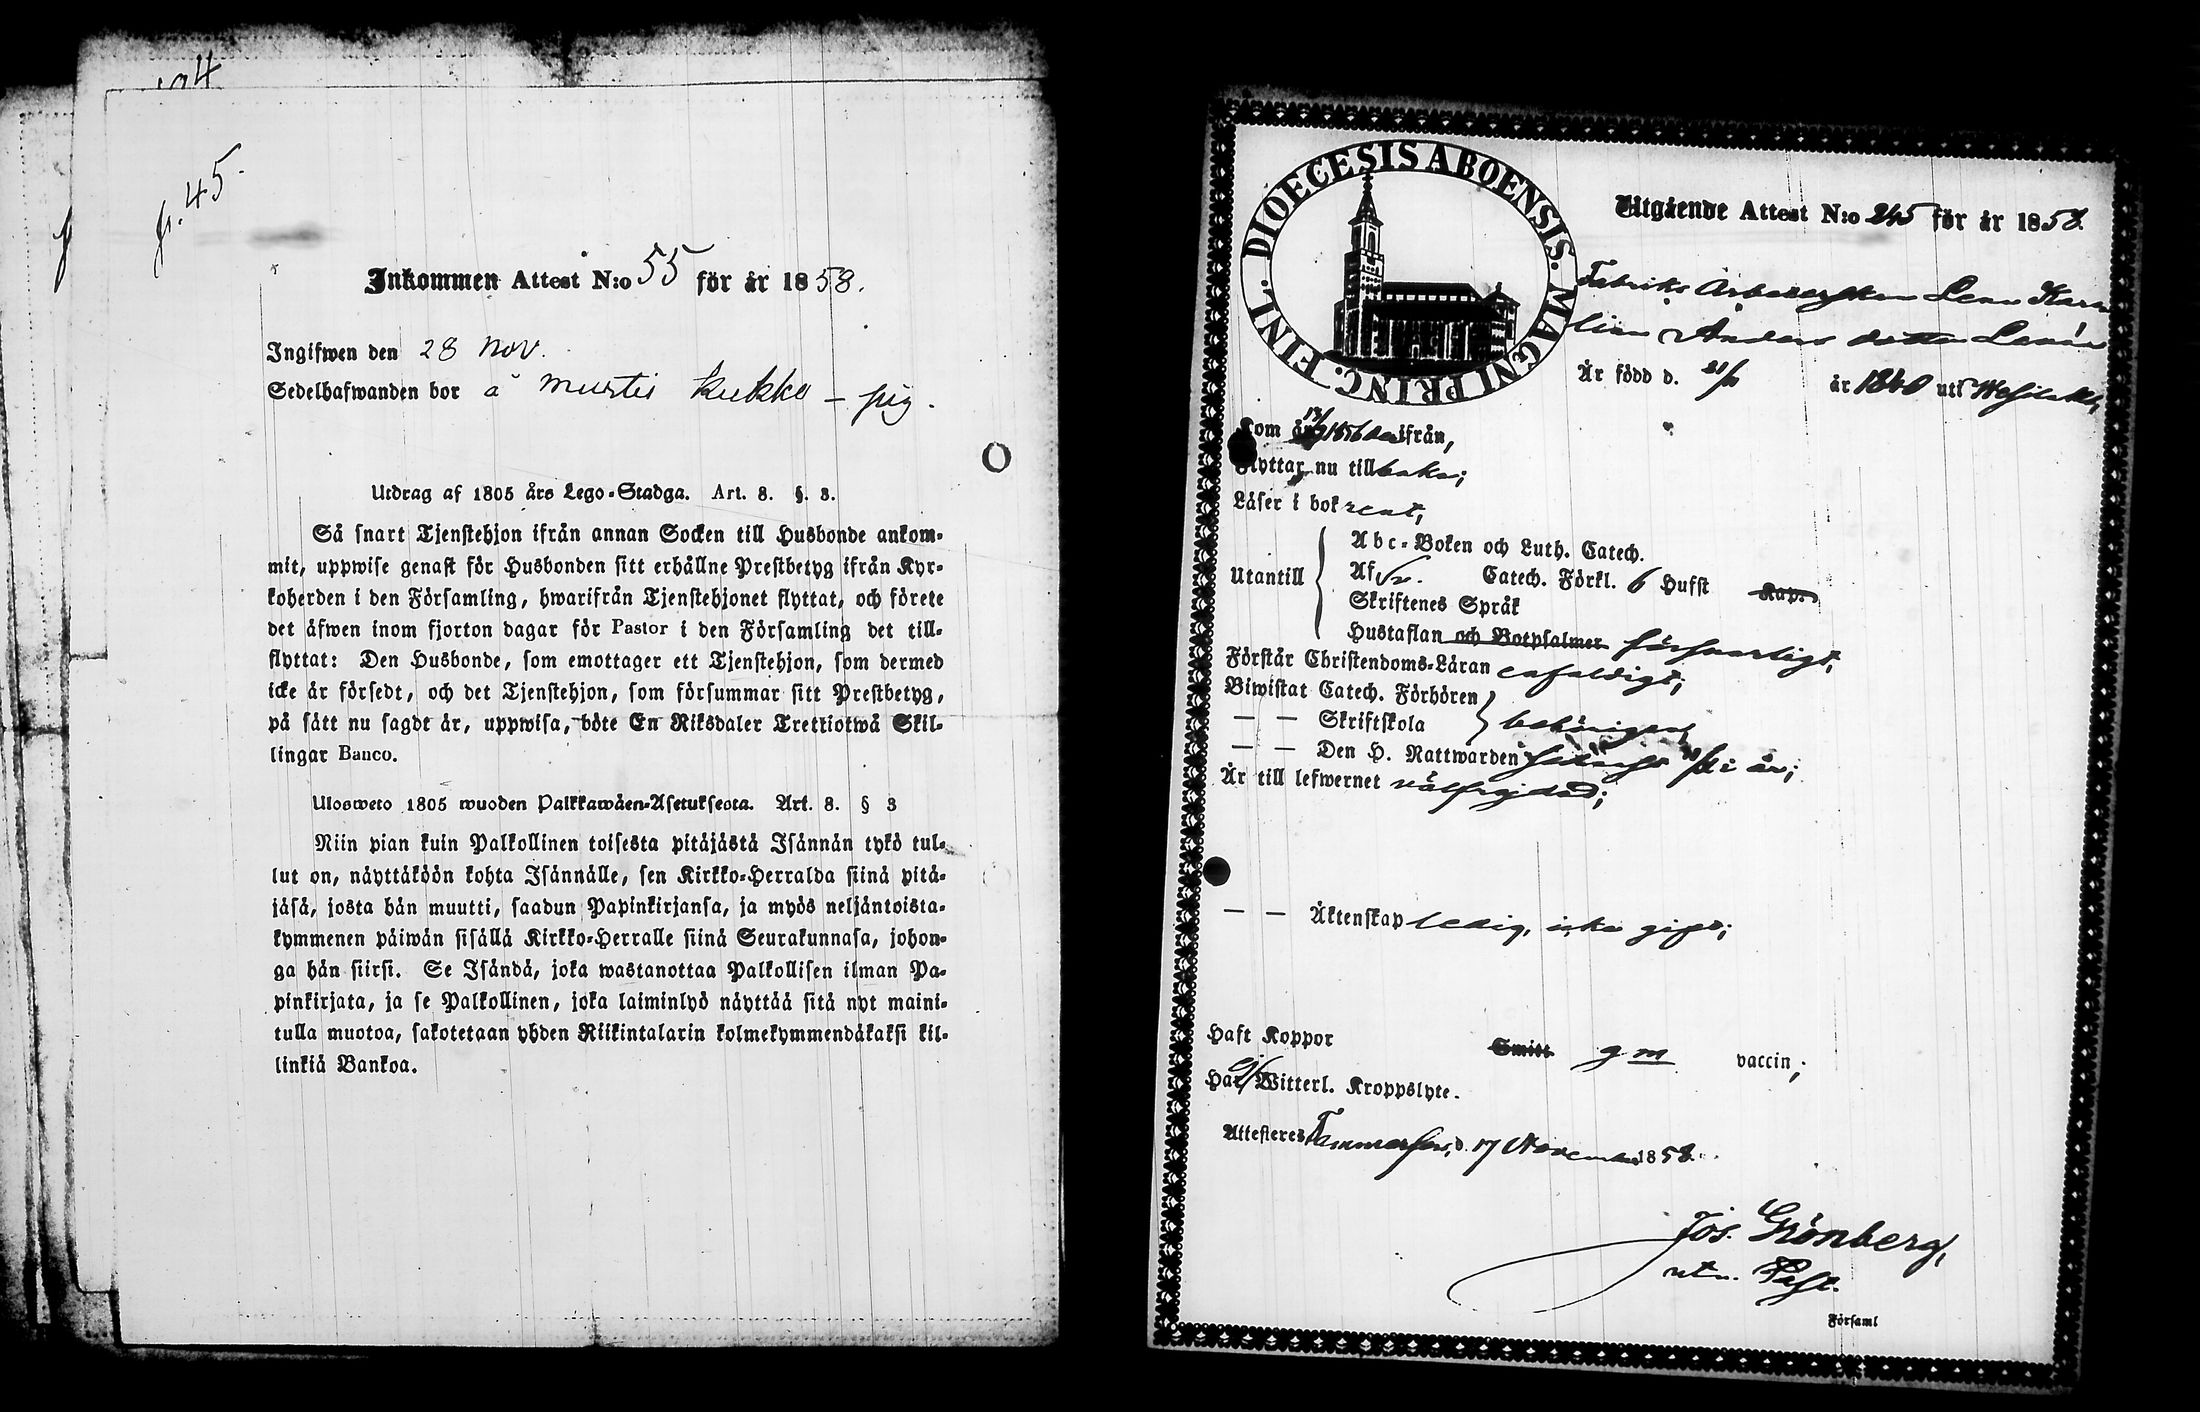 p. 45.
Inkommen Attest N:o 55 för år 1858.
Ingifwen den 28 Nov.
Sedelhafwanden bor å Murtis Kukko – pig.
Utdrag af 1805 års Lego-Stadga. Art. 8. §. 3.
Så snart Tjenstehjon ifrån annan Socken till Husbonde ankom-
mit, uppwise genast för Husbonden sitt erhållne Prestbetyg ifrån Kyr-
koherden i den Församling, hwarifrån Tjenstehjonet flyttat, och förete
det äfwen inom fjorton dagar för Pastor i den Församling det till-
flyttat: Den Husbonde, som emottager ett Tjenstehjon, som dermed
icke är försedt, och det Tjenstehjon, som försummar sitt Prestbetyg,
på sätt nu sagdt är, uppwisa, böte En Riksdaler Trettiotwå Skil-
lingar Banco.
Ulosweto 1805 wuoden Palkkawäen-Asetuksesta. Art. 8. § 3
Niin pian kuin Palkollinen toisesta pitäjästä Isännän tykö tul-
lut on, näyttäköön kohta Isännälle, sen Kirkko-Herralda siinä pitä-
jäsä, josta hän muutti, saadun Papinkirjansa, ja myös neljäntoista-
kymmenen päiwän sisällä Kirkko-Herralle siinä Seurakunnasa, johon-
ga hän siirsi. Se Isändä, joka wastanottaa Palkollisen ilman Pa-
pinkirjata, ja se Palkollinen, joka laiminlyö näyttää sitä nyt maini-
tulla muotoa, sakotetaan yhden Riikintalarin kolmekymmendäkaksi kil-
linkiä Bankoa.
DIOECESIS ABOENSIS. MAGNI PRINC. FINL.
Utgående Attest N:o 245 för år 1858.
Fabriks Arbeterskan Lena Karo
lina Anders dotter
Är född d. år 1840 uti Wesilaks,
Kom år 1856 derifrån,
Flyttar nu tillbaka;
Läser i bok rent,
Utantill
Abc-Boken och Luth. Catech.
Af Sv. Catech. Förkl. 6 Hufst Kap.
Skriftenes Språk
Hustaflan och Botpsalmer försvarligt,
Förstår Christendoms-Läran enfaldigt;
Biwistat Catech. Förhören
— — Skriftskola behörigen,
— — Den H. Nattwarden i år;
Är till lefwernet välfrejdad;
— — Äktenskap ledig, icke gift;
Haft Koppor Smitt g m vaccin;
Har ej Witterl. Kroppslyte.
Attesteres Tammerfors, d. 17 November 1858.
Jos. Grönberg,
Past.
Församl